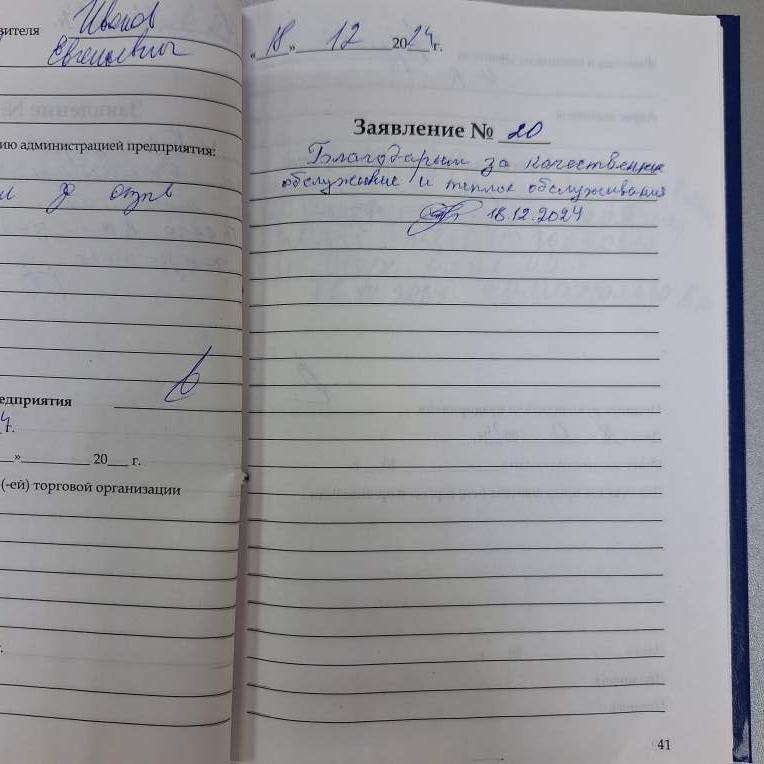 вителя Иванов
Евгеньевич
ию администрацией предприятия:
за отзыв
едприятия
4 г.
» 20 г.
(-ей) торговой организации
г.
« 18 » 12 2024 г.
Заявление № 20
Благодарим за качественное
обслуживание и теплое обслуживания
18.12.2024
41